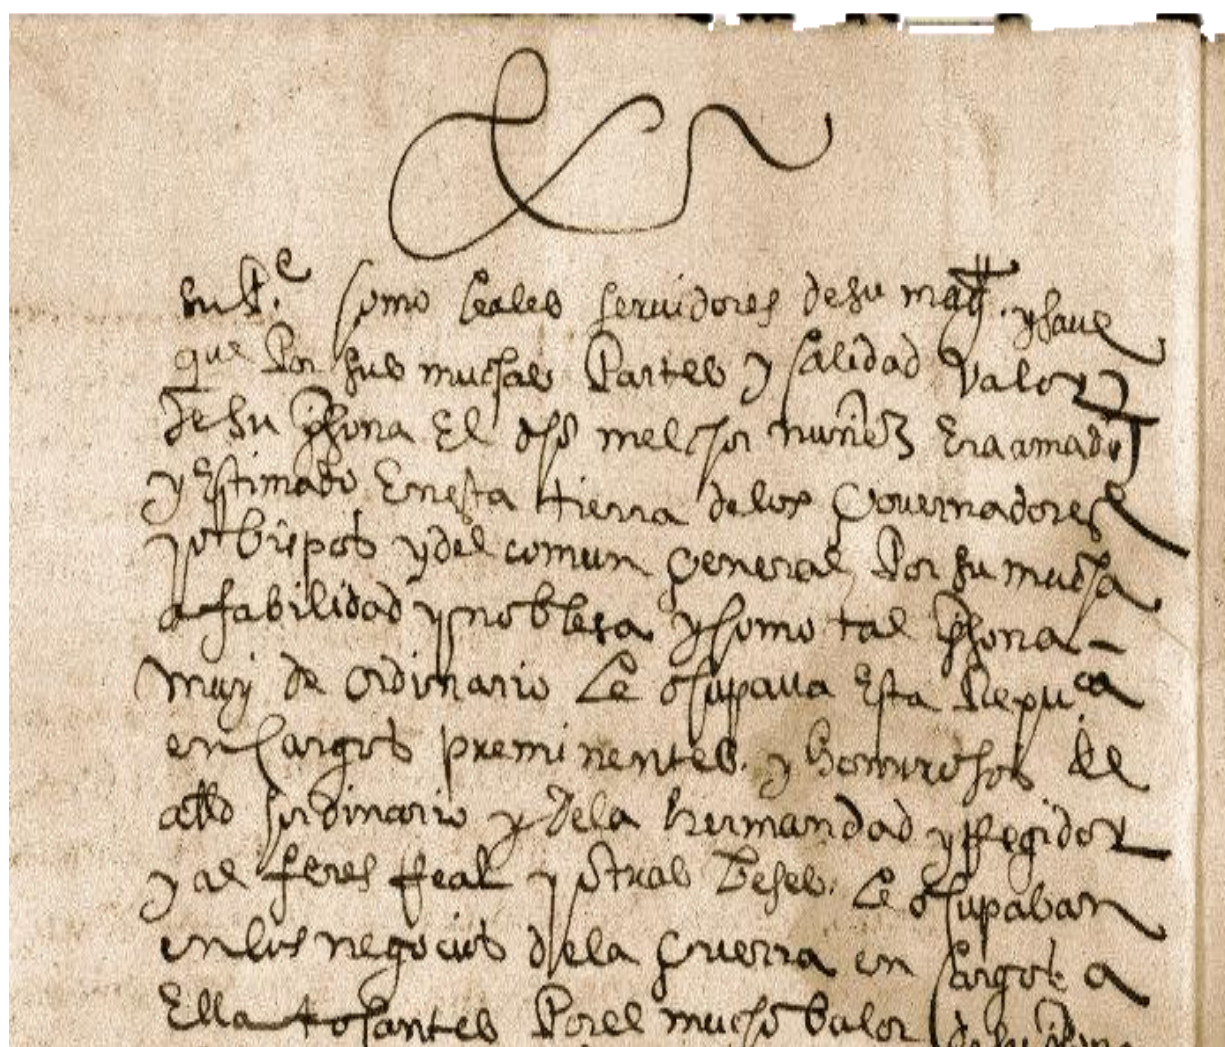 como leales servidores de su magd. y save
que Por sus muchas Partes y calidad valor y
de su psona El dho melchor nuñez Era amado
y Estimado En esta tierra de los Governadores
y obispos y del comun general Por su mucha
afabilidad y nobleza y como tal psona
muy de ordinario le ocupava Esta Repuca
en cargos preminentes y honurosos de
allo hordinario y de la hermandad y Regidor
y alferes Real y otras beses le ocupaban
en los negocios de la guerra en cargos a
Ella tocantes Por el mucho balor de su psona